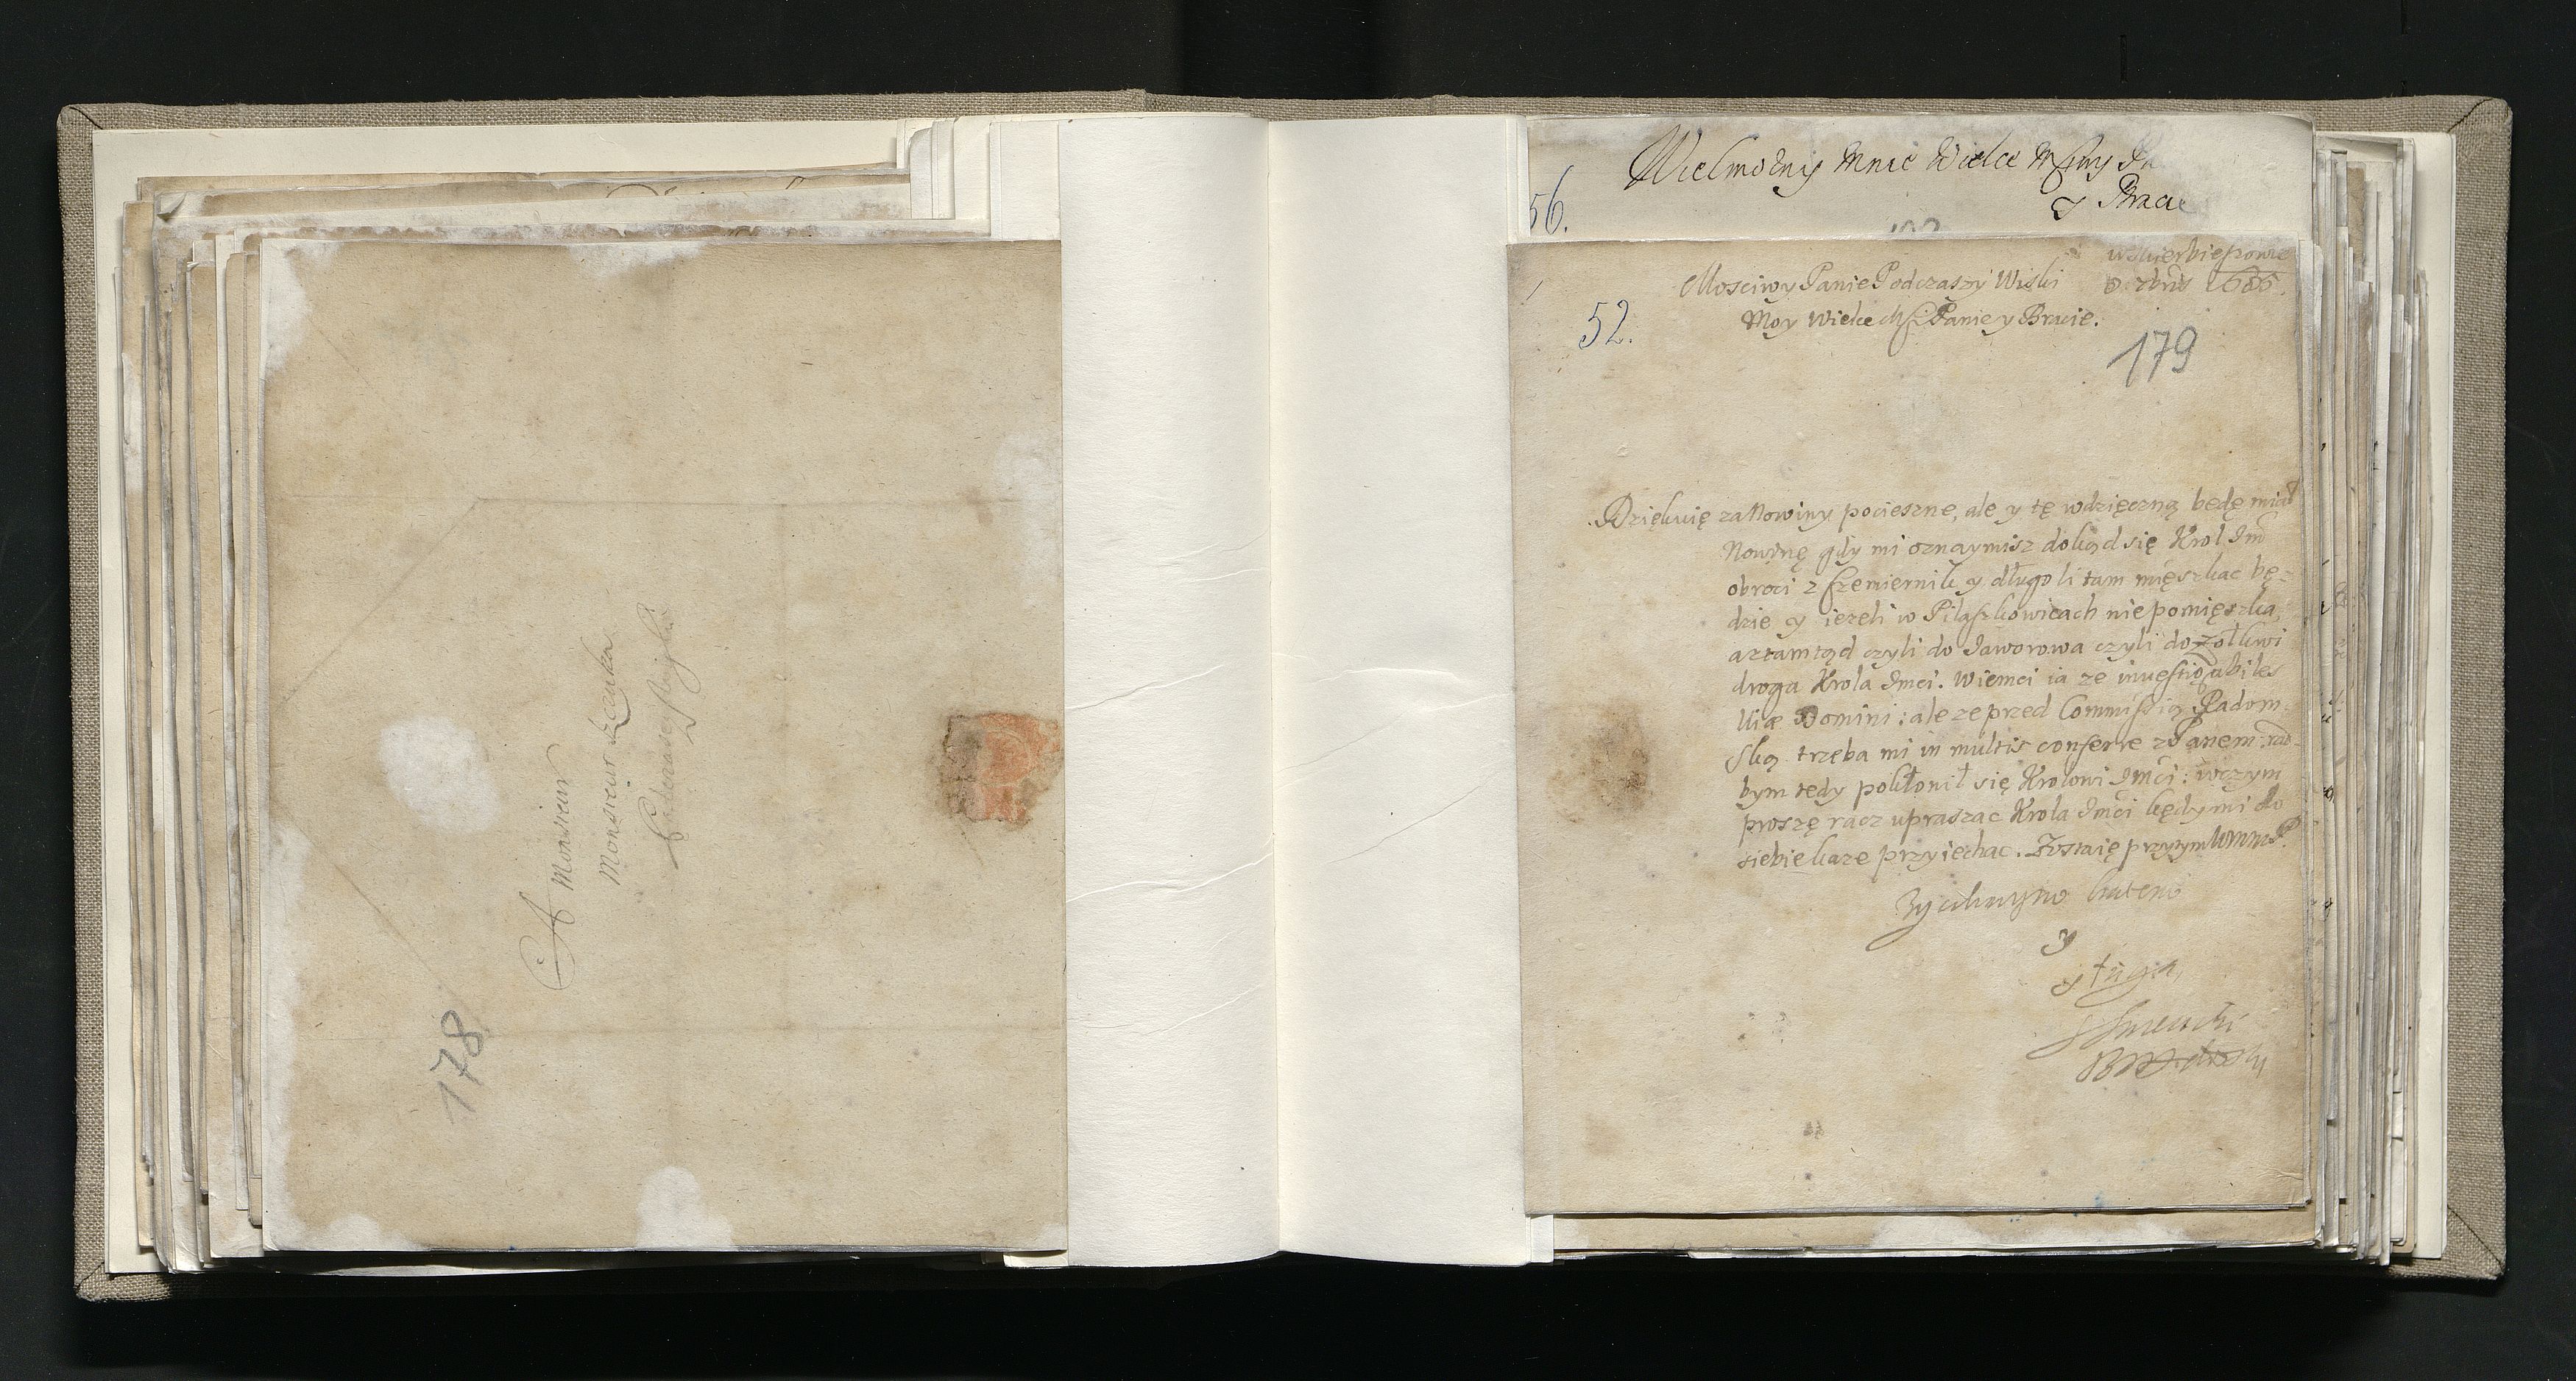 A Monsieur
Monsieur Szczuka
178
Wielmożny Mnie Wielce Mściwy Pa
y Bracie
56.
1686.
Mosciwy Panie Podczaszy Wiski
Moy Wielce Mści Panie y Bracie.
52.
179
Dziękuię za Nowiny pocieszne, ale y tę wdzięczną będę miał
Nowinę gdy mi oznaymisz dokąd się Krol Jm
obroci z Czemiernik y długo li tam mięszkac bę-
dzie y iezeli w Pilaszkowicach niepomięszka,
aztamtąd czyli do Jaworowa czyli do Zołkwi
droga Krola Jmci. Wiemci ia ze investigabiles
viæ Domini: ale ze przed Commissią Radom-
ską trzeba mi in multis conferre z Panem: rad-
bym tedy pokłonił się Krolowi Jmci: wczym
proszę racz upraszac Krola Jmci kędy mi do
siebie kaze przyiechac. Zostaię przytym
Zyczliwym bratem
y
sługa